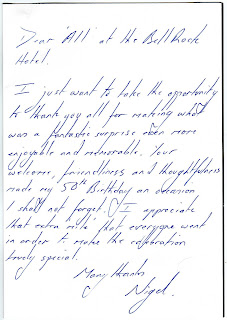 Dear 'All' at the Bell Rock
Hotel.
I just want to take the opportunity
to thank you all for making what
was a fantastic surprise even more
enjoyable and memorable. Your
welcome, friendliness and thoughtfulness
made my 50th Birthday an occasion
I shall not forget. I appreciate
that extra 'mile' that everyone went
in order to make the celebration
truely special.
Many thanks
Nigel.